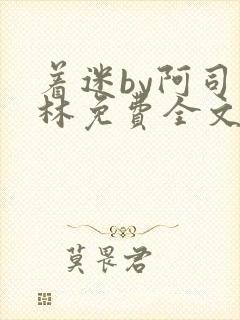 着迷by阿司
林免费全文
莫畏君